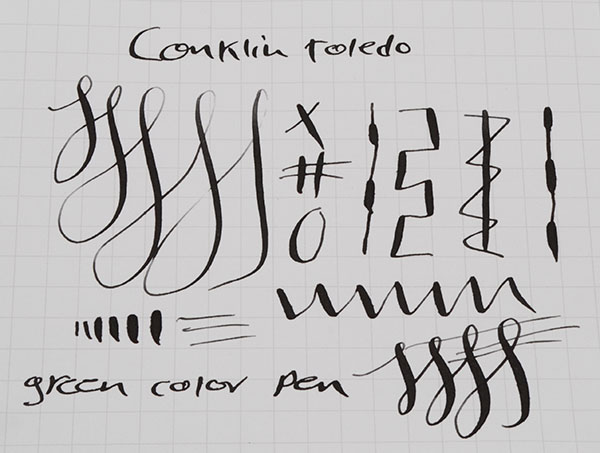 Conklin toledo
X
#
O
green color pen